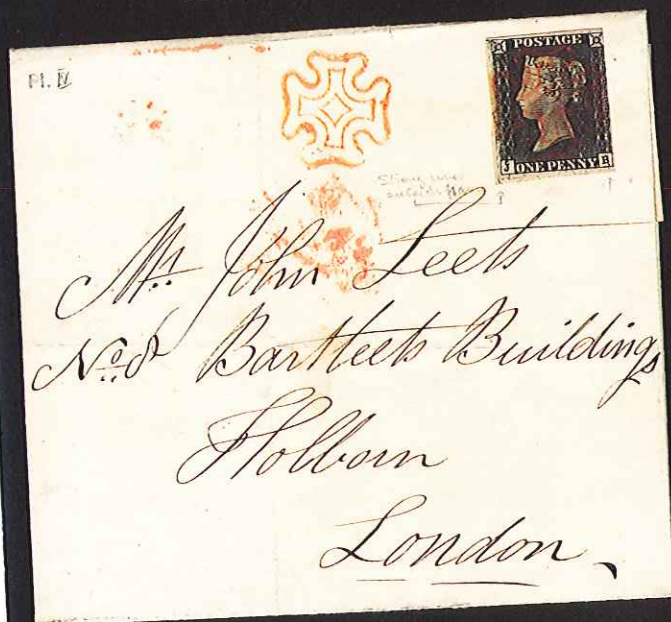 Pl. IV
POSTAGE
J ONE PENNY B
Mr. John Leets
No. 8 Bartleets Buildings
Holborn
London